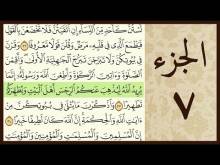 لَسْتُنَّ كَأَحَدٍ مِّنَ النِّسَاءِ إِنِ اتَّقَيْتُنَّ فَلَا تَخْضَعْنَ بِالْقَوْلِ
فَيَطْمَعَ الَّذِي فِي قَلْبِهِ مَرَضٌ وَقُلْنَ قَوْلًا مَّعْرُوفًا
وَقَرْنَ فِي بُيُوتِكُنَّ وَلَا تَبَرَّجْنَ تَبَرُّجَ الْجَاهِلِيَّةِ الْأُولَىٰ وَأَقِمْنَ
الصَّلَوٰةَ وَءَاتِينَ الزَّكَوٰةَ وَأَطِعْنَ اللَّهَ وَرَسُولَهُ إِنَّمَا
يُرِيدُ اللَّهُ لِيُذْهِبَ عَنكُمُ الرِّجْسَ أَهْلَ الْبَيْتِ وَيُطَهِّرَكُمْ
تَطْهِيرًا وَاذْكُرْنَ مَا يُتْلَىٰ فِي بُيُوتِكُنَّ مِنْ
ءَايَٰتِ اللَّهِ وَالْحِكْمَةِ إِنَّ اللَّهَ كَانَ لَطِيفًا خَبِيرًا
إِنَّ الْمُسْلِمِينَ وَالْمُسْلِمَٰتِ وَالْمُؤْمِنِينَ وَالْمُؤْمِنَٰتِ
الجزء
٧